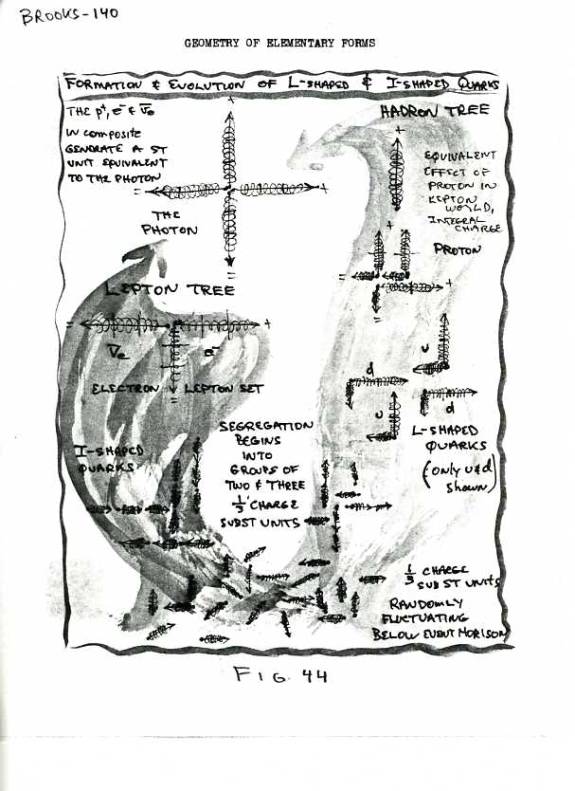 BROOKS-140
GEOMETRY OF ELEMENTARY FORMS
FORMATION & EVOLUTION OF L-SHAPED & I-SHAPED QUARKS
THE p+, e- & v̄e
IN COMPOSITE
GENERATE A ST
UNIT EQUIVALENT
TO THE PHOTON
THE
PHOTON
HADRON TREE
EQUIVALENT
EFFECT OF
PROTON IN
LEPTON
WORLD,
INTEGRAL
CHARGE
PROTON
LEPTON TREE
V̄e
ELECTRON LEPTON SET
I-SHAPED
QUARKS
SEGREGATION
BEGINS
INTO
GROUPS OF
TWO & THREE
1/3 CHARGE
SUBST UNITS
u
d
u
d
L-SHAPED
QUARKS
(only u&d
shown)
1/3 CHARGE
SUBST UNITS
RANDOMLY
FLUCTUATING
BELOW EVENT HORISON
FIG. 44